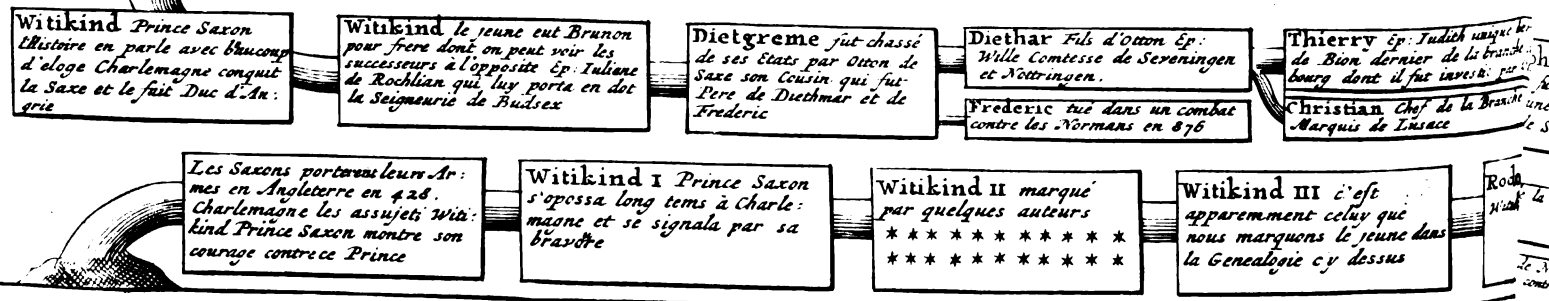 Witikind Prince Saxon
l'Histoire en parle avec beaucoup
d'eloge Charlemagne conquit
la Saxe et le fait Duc d'An:
grie
Witikind le jeune eut Brunon
pour frere dont on peut voir les
successeurs à l'opposite Ep: Iuliane
de Rochlian qui luy porta en dot
la Seigneurie de Budsex
Dietgreme fut chassé
de ses Etats par Otton de
Saxe son Cousin qui fut
Pere de Diethmar et de
Frederic
Diethar Fils d'Otton Ep:
Wille Comtesse de Sereningen
et Nottringen.
Frederic tué dans un combat
contre les Normans en 876
Thierry Ep: Iudith unique
de Bion dernier de la branche
bourg dont il fut investi par
Christian Chef de la Branche
Marquis de Lusace
Les Saxons porterent leurs Ar:
mes en Angleterre en 428.
Charlemagne les assujeti Witi:
kind Prince Saxon montre son
courage contre ce Prince
Witikind I Prince Saxon
s'opossa long tems à Charle:
magne et se signala par sa
bravoure
Witikind II marqué
par quelques auteurs
* * * * * * * * * * *
* * * * * * * * * * *
Witikind III c'est
apparemment celuy que
nous marquons le jeune dans
la Genealogie cy dessus
la